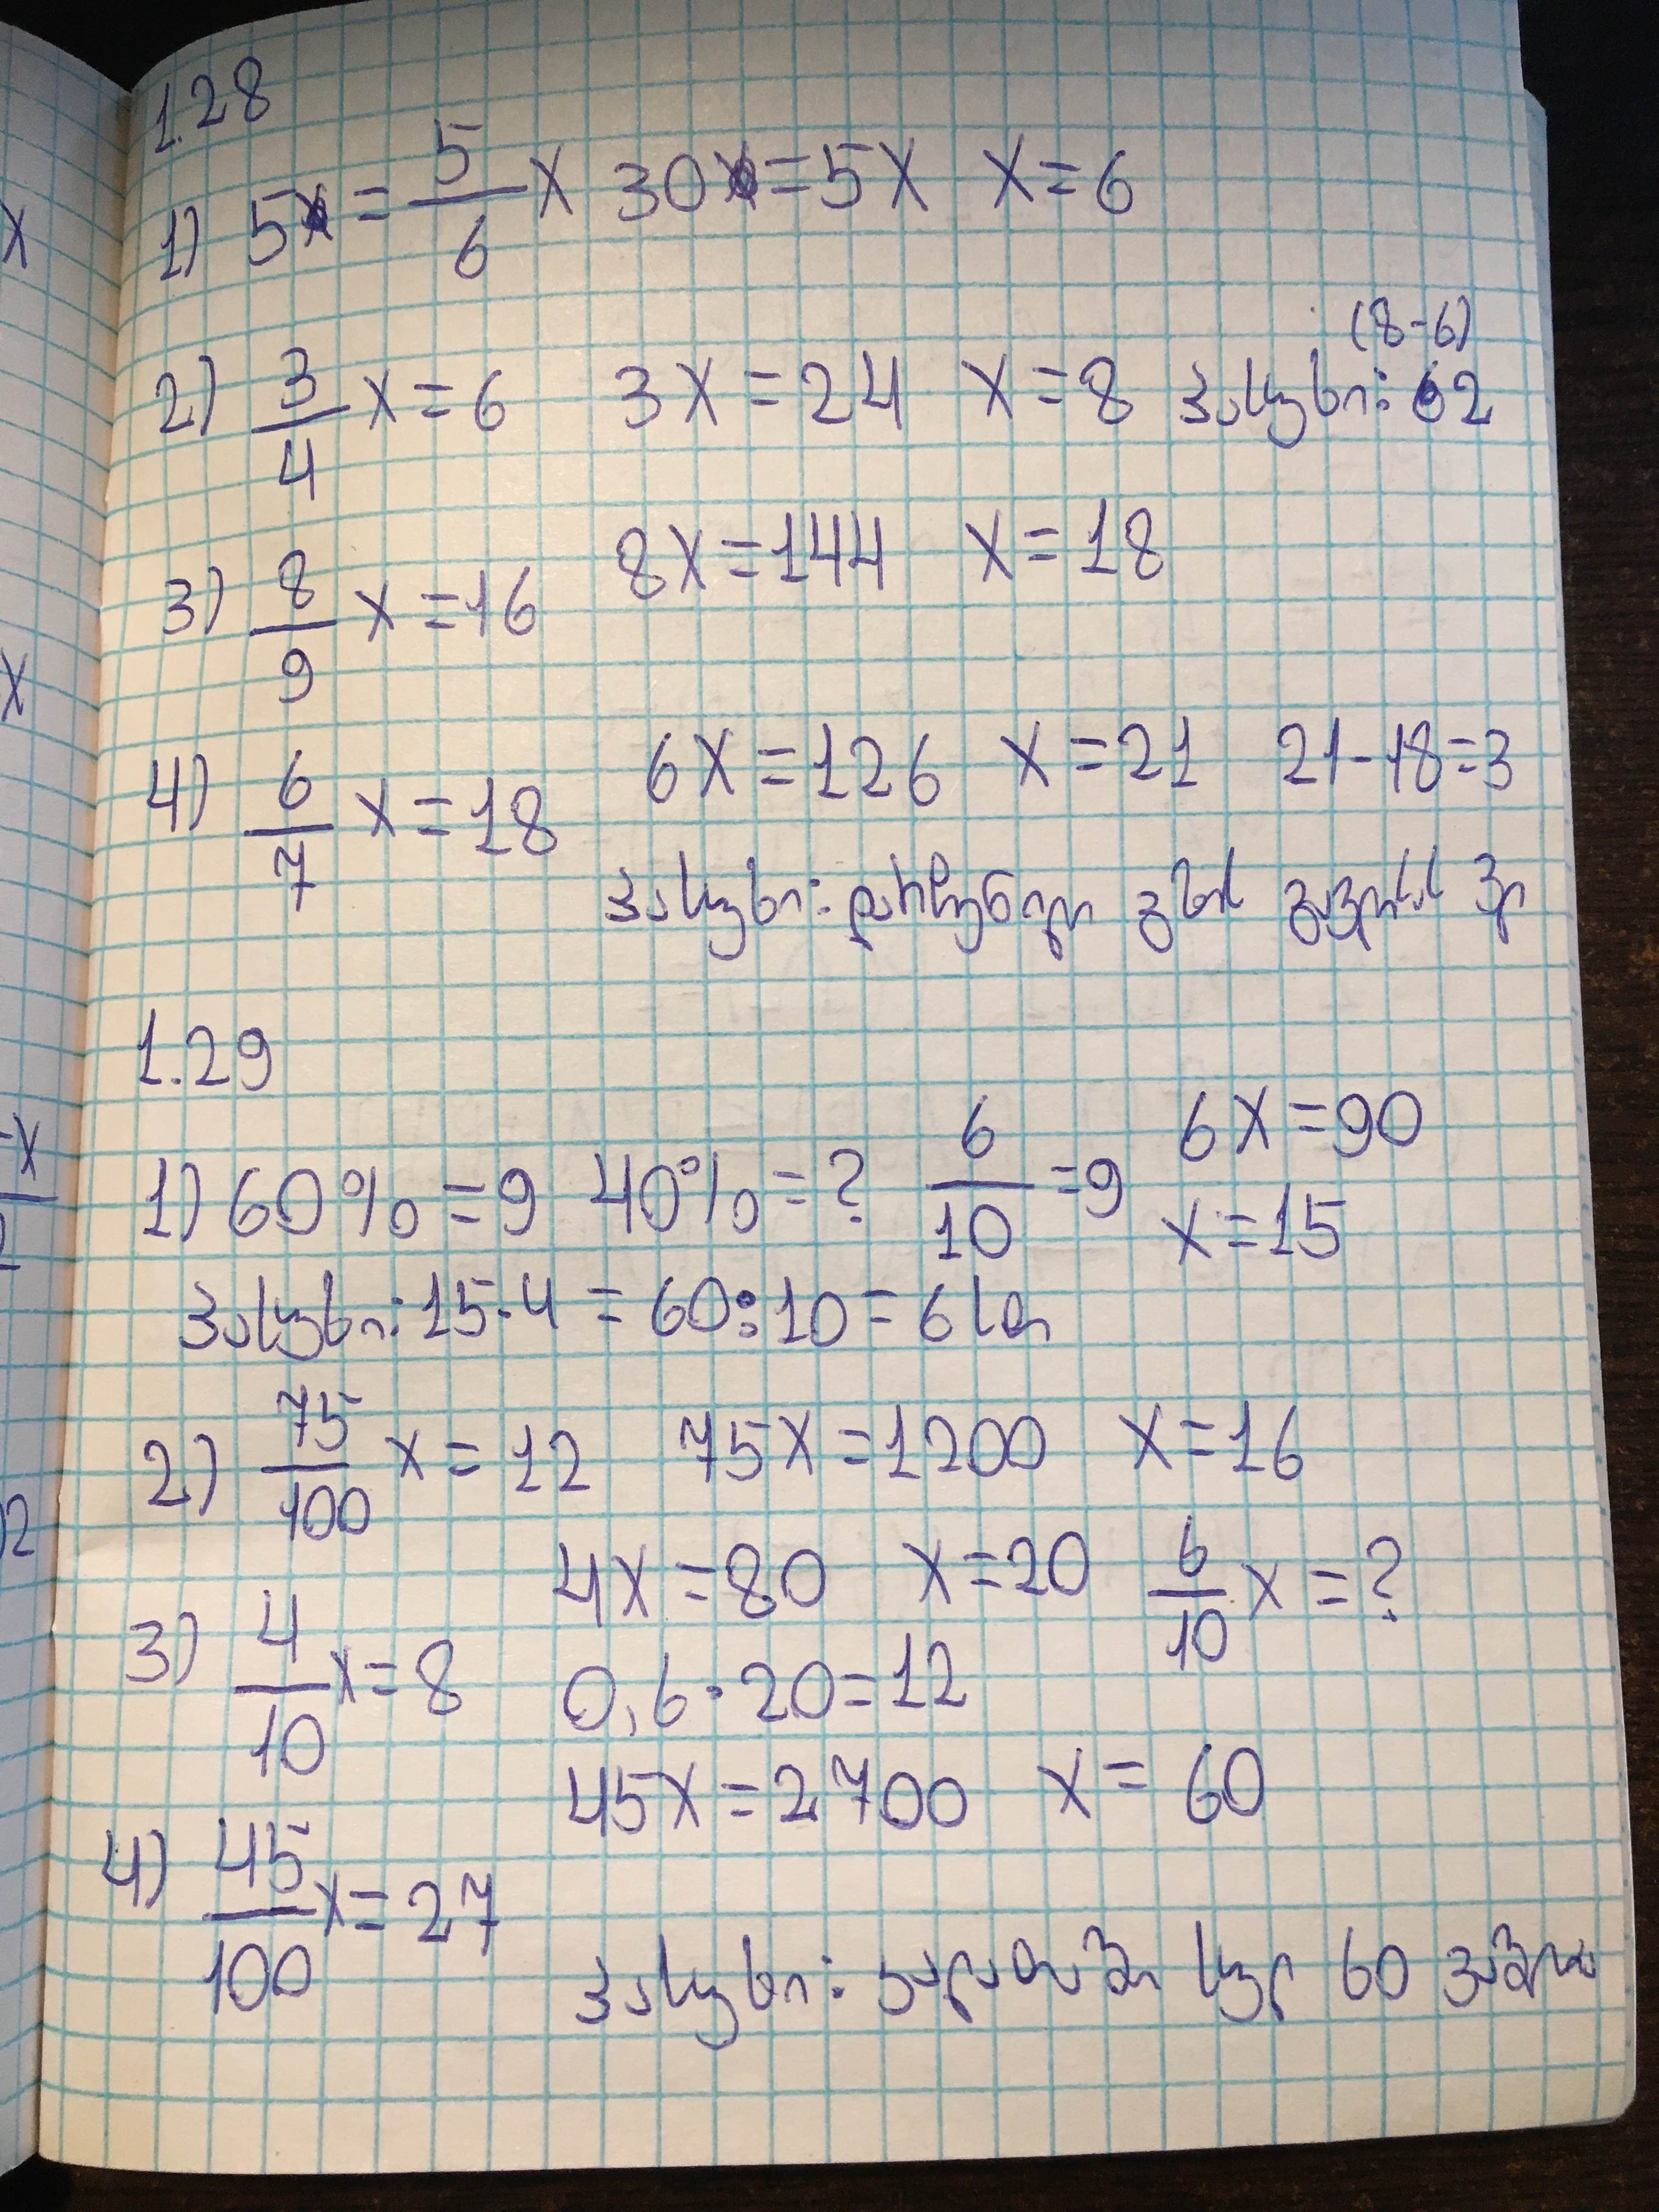 1.28
1) 5 = 5/6 x 30 = 5x x = 6
(8-6)
2) 3/4 x = 6 3x = 24 x = 8 პასუხი: 2
3) 8/9 x = 16 8x = 144 x = 18
4) 6/7 x = 18 6x = 126 x = 21 21-18=3
პასუხი: დარჩენილი გზის გავლას
1.29
1) 60% = 9 40% = ? 6/10 = 9 6x = 90
x = 15
პასუხი: 15·4 = 60:10 = 6 სთ
2) 75/100 x = 12 75x = 1200 x = 16
3) 4/10 x = 8 4x = 80 x = 20 6/10 x = ?
0,6·20=12
4) 45/100 x = 27 45x = 2700 x = 60
პასუხი: კალათაში სულ 60 ვაშლია